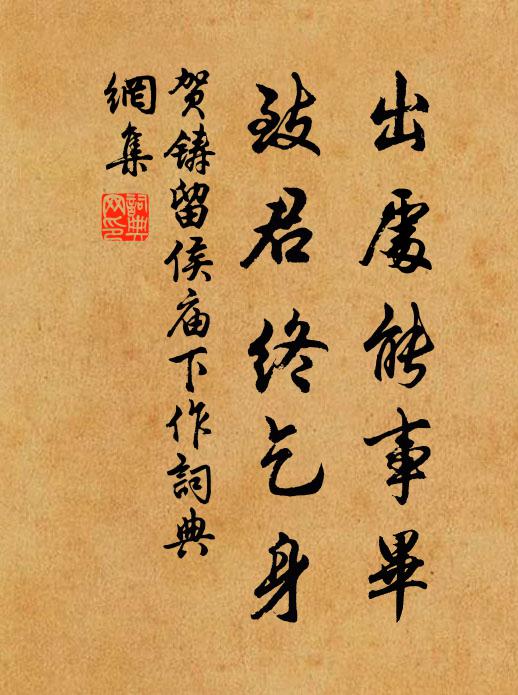 出處能事畢
致君終乞身
贺鑄留侯庙下作詞典
網集
詞典
网印